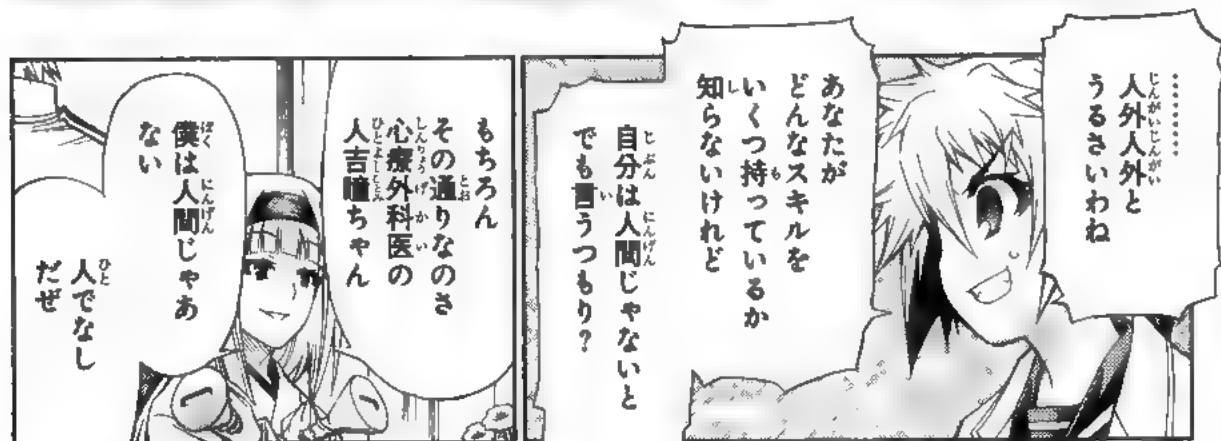 ………
人外人外と
うるさいわね
あなたが
どんなスキルを
いくつ持っているか
知らないけれど
自分は人間じゃないと
でも言うつもり？
もちろん
その通りなのさ
心療外科医の
人吉瞳ちゃん
僕は人間じゃあ
ない
人でなし
だぜ